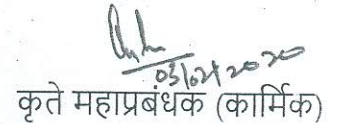 03/02/2020
कृते महाप्रबंधक (कार्मिक)